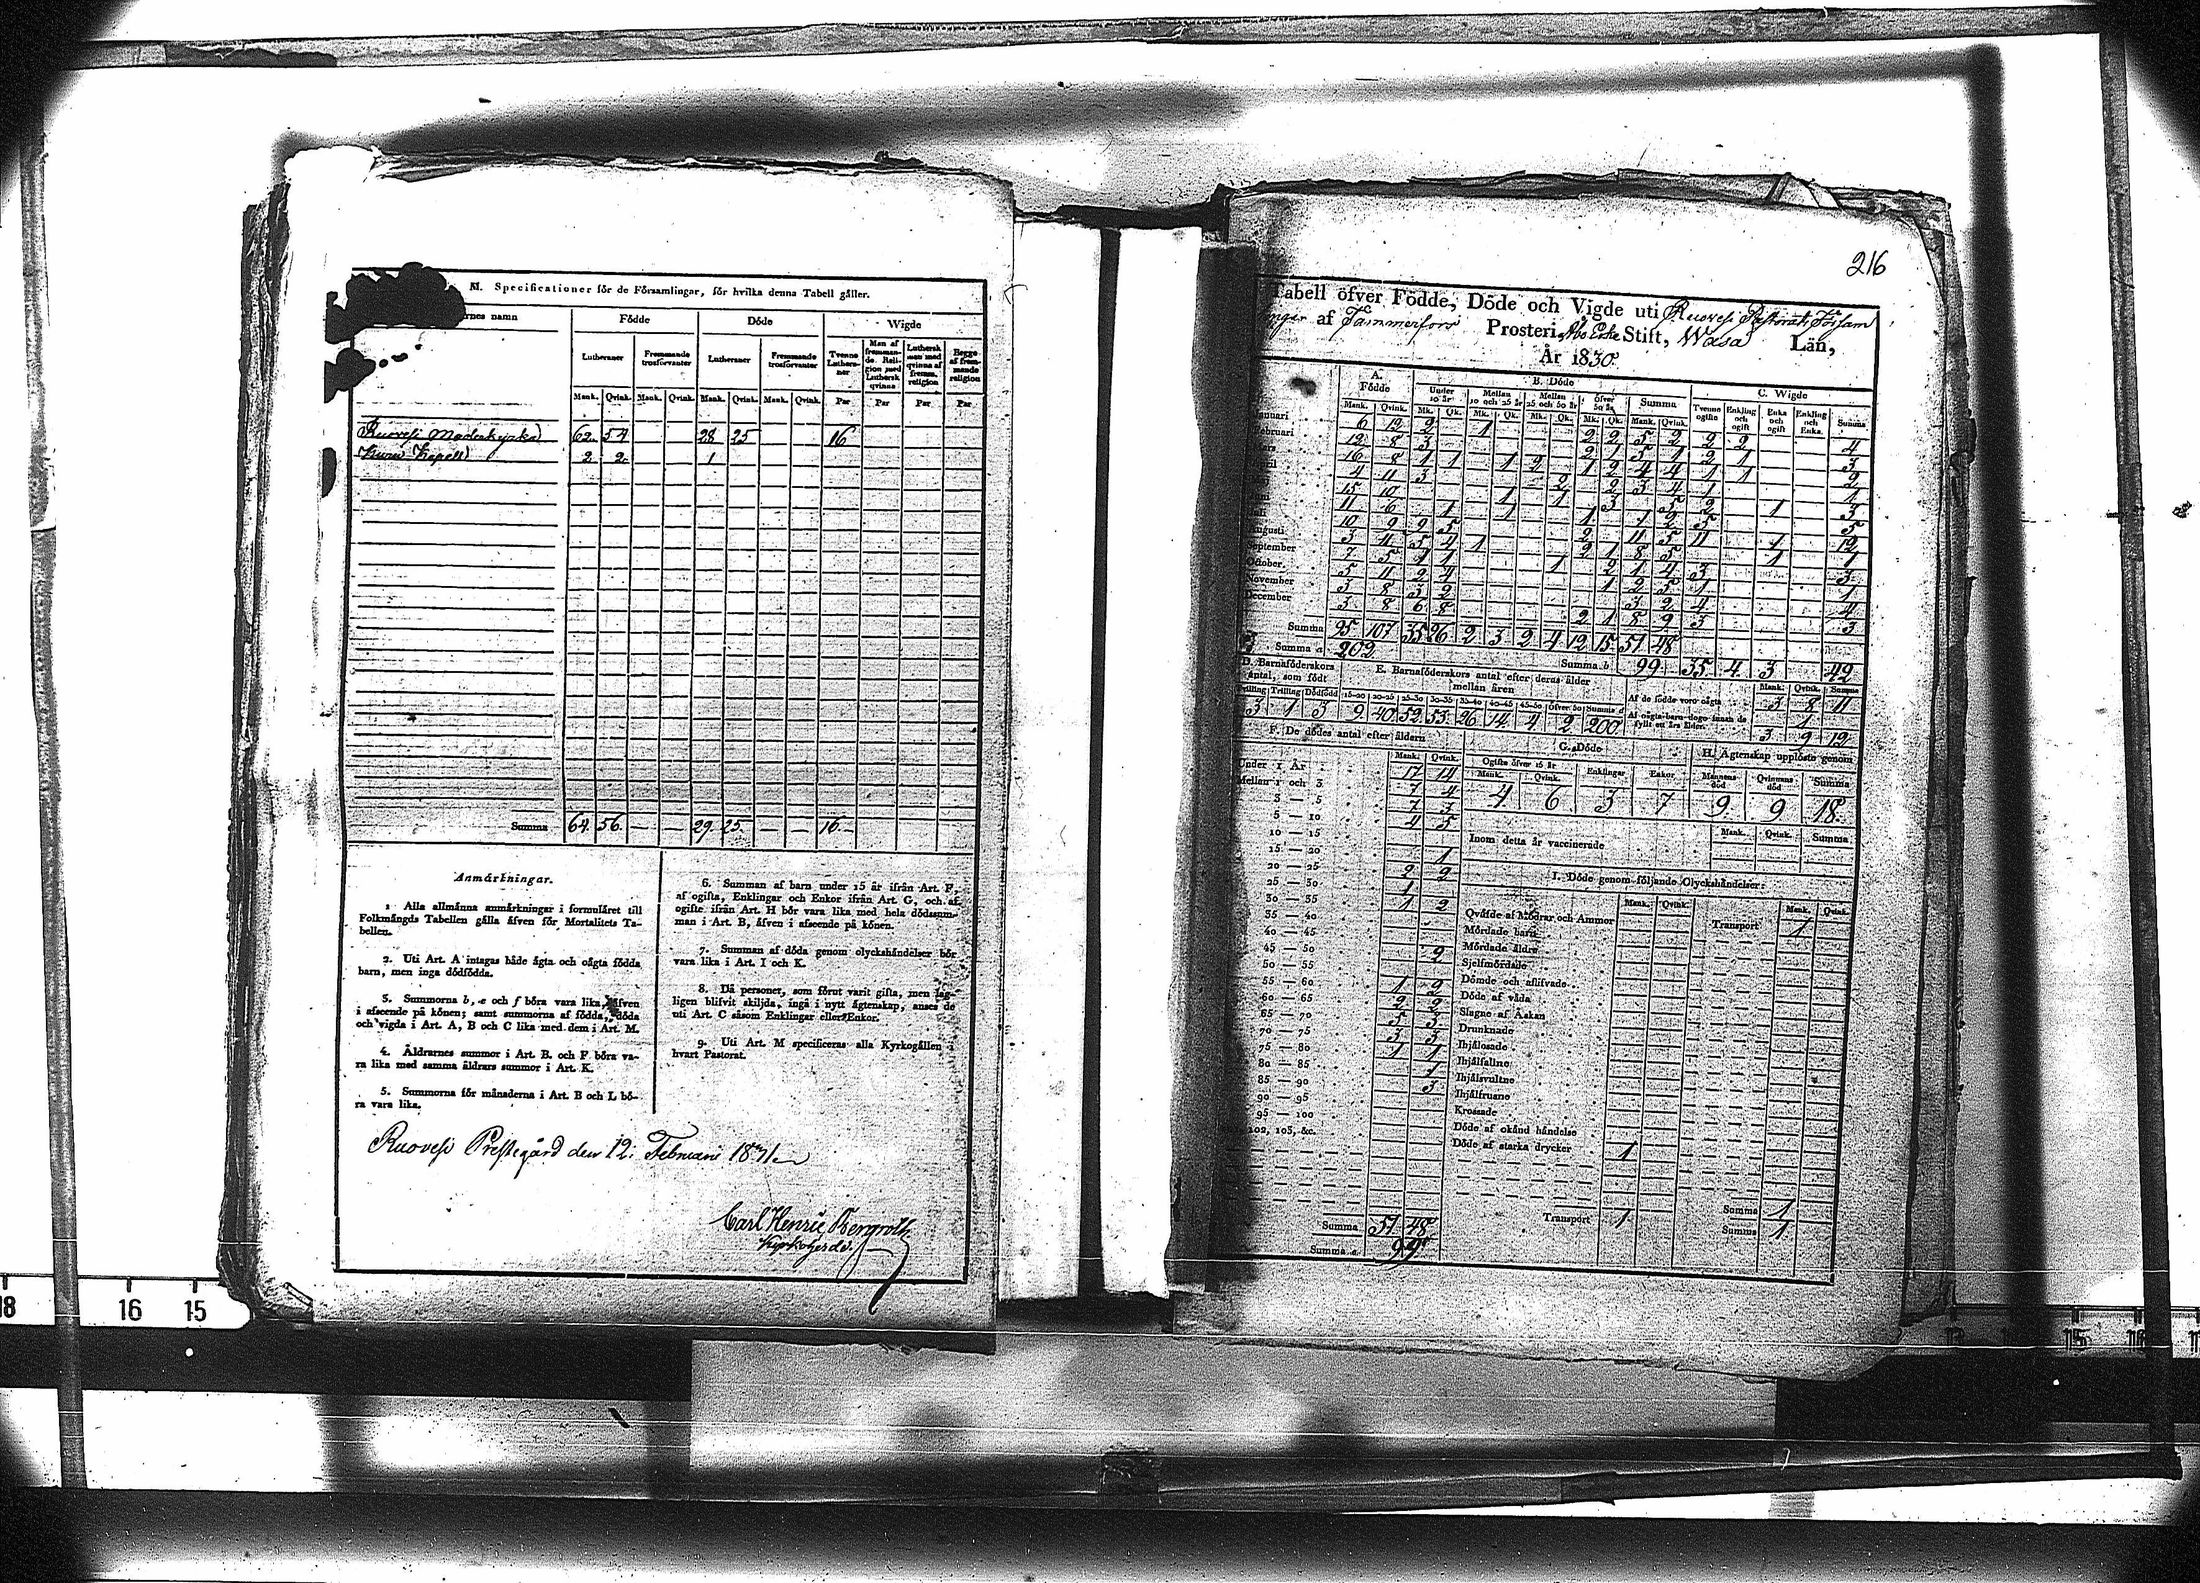 M. Specificationer för de Församlingar, för hvilka denna Tabell gäller.
rnes namn Födde Döde Wigde
Lutheraner Fremmande trosförvanter Lutheraner Fremmande trosförvanter Tvenne Lutheraner Man af fremmande Religion med Luthersk qvinna Luthersk man med qvinna af fremm. religion Begge af fremmande religion
Mank. Qvink. Mank. Qvink. Mank. Qvink. Mank. Qvink. Par Par Par Par
Ruovesi Moderkyrka 62 54 28 25 16
Kuru Kapell 2 2 1
Summa 64 56 — — 29 25 — — 16
Anmärkningar.
1 Alla allmänna anmärkningar i formuläret till
Folkmängds Tabellen gälla äfven för Mortalitets Ta-
bellen.
2. Uti Art. A intagas både ägta och oägta födda
barn, men inga dödfödda.
3. Summorna b, e och f böra vara lika, äfven
i afseende på könen; samt summorna af födda, döda
och vigda i Art. A, B och C lika med dem i Art. M.
4. Åldrarnes summor i Art. B. och F böra va-
ra lika med samma åldrars summor i Art. K.
5. Summorna för månaderna i Art. B och L bö-
ra vara lika.
6. Summan af barn under 15 år ifrån Art. F,
af ogifta, Enklingar och Enkor ifrån Art. G, och af
ogifte ifrån Art. H bör vara lika med hela dödssum-
man i Art. B, äfven i afseende på könen.
7. Summan af döda genom olyckshändelser bör
vara lika i Art. I och K.
8. Då personer, som förut varit gifta, men lag-
ligen blifvit skiljda, ingå i nytt ägtenskap, anses de
uti Art. C såsom Enklingar eller Enkor.
9. Uti Art. M specificeras alla Kyrkogällen i
hvart Pastorat.
Ruovesi Prestegård den 12. Februarii 1831
Carl Henric Bergroth
Kyrkoherde.
216
Tabell öfver Födde, Döde och Vigde uti Ruovesi Pastorats Försam
lingar af Tammerfors Prosteri, Åbo Erke Stift, Wasa Län,
År 1830.
A. Födde B. Döde C. Wigde
Under 10 år Mellan 10 och 25 år Mellan 25 och 50 år öfver 50 år Summa Tvenne ogifte Enkling och ogift Enka och ogift Enkling och Enka. Summa
Mank. Qvink. Mk. Qk. Mk. Qk. Mk. Qk. Mk. Qk. Mank. Qvink.
Januari 6 12 2 1 2 2 5 2 2 2 4
Februari 12 8 3 2 1 5 1 2 1 3
Mars 16 8 1 1 1 2 1 2 4 4 1 1 2
April 4 11 3 2 2 3 4 1 1
Maj 15 10 1 1 3 5 2 1 3
Juni 11 6 1 1 1 1 2 5 5
Juli 10 9 2 5 2 11 5 11 1 12
Augusti 3 11 5 4 1 2 1 8 5 1 1
September 7 5 1 1 1 2 1 4 3 3
October 5 11 2 4 1 2 5 1 1
November 3 8 3 2 3 2 4 4
December 3 8 6 8 2 1 8 9 3 3
Summa 95 107 35 26 2 3 2 4 12 15 51 48
Summa a 202 Summa b 99 35 4 3 42
D. Barnaföderskors antal, som födt E. Barnaföderskors antal efter deras ålder mellan åren
Tvilling Trilling Dödfödd 15–20 20–25 25–30 30–35 35–40 40–45 45–50 öfver 50 Summa d
3 1 3 9 40 52 53 26 14 4 2 200
Mank. Qvink. Summa
Af de födde voro oägta 3 8 11
Af oägta barn dogo innan de fyllt ett års ålder 3 9 12
F. De dödes antal efter åldern
Mank. Qvink.
Under 1 År 17 14
Mellan 1 och 3 7 4
3 — 5 7 3
5 — 10 4 5
10 — 15
15 — 20 1
20 — 25 2 2
25 — 30 1
30 — 35 1 2
35 — 40
40 — 45
45 — 50 2
50 — 55
55 — 60 1 2
60 — 65 2 2
65 — 70 5 3
70 — 75 3 3
75 — 80 1 1
80 — 85 1
85 — 90 3
90 — 95
95 — 100
102, 103, &c.
Summa 51 48
Summa e 99
G. Döde
Ogifte öfver 15 år Enklingar Enkor
Mank. Qvink.
4 6 3 7
H. Ägtenskap upplöste genom
Mannens död Qvinnans död Summa
9 9 18
Mank. Qvink. Summa
Inom detta år vaccinerade
I. Döde genom följande Olyckshändelser:
Mank. Qvink. Mank. Qvink.
Qväfde af Mödrar och Ammor Transport 1
Mördade barn
Mördade äldre
Sjelfmördade
Dömde och aflifvade
Döde af våda
Slagne af Åskan
Drunknade
Ihjälosade
Ihjälfallne
Ihjälsvultne
Ihjälfrusne
Krossade
Döde af okänd händelse
Döde af starka drycker 1
Transport 1
Summa 1
Summa 1
18 16 15
13 15 16